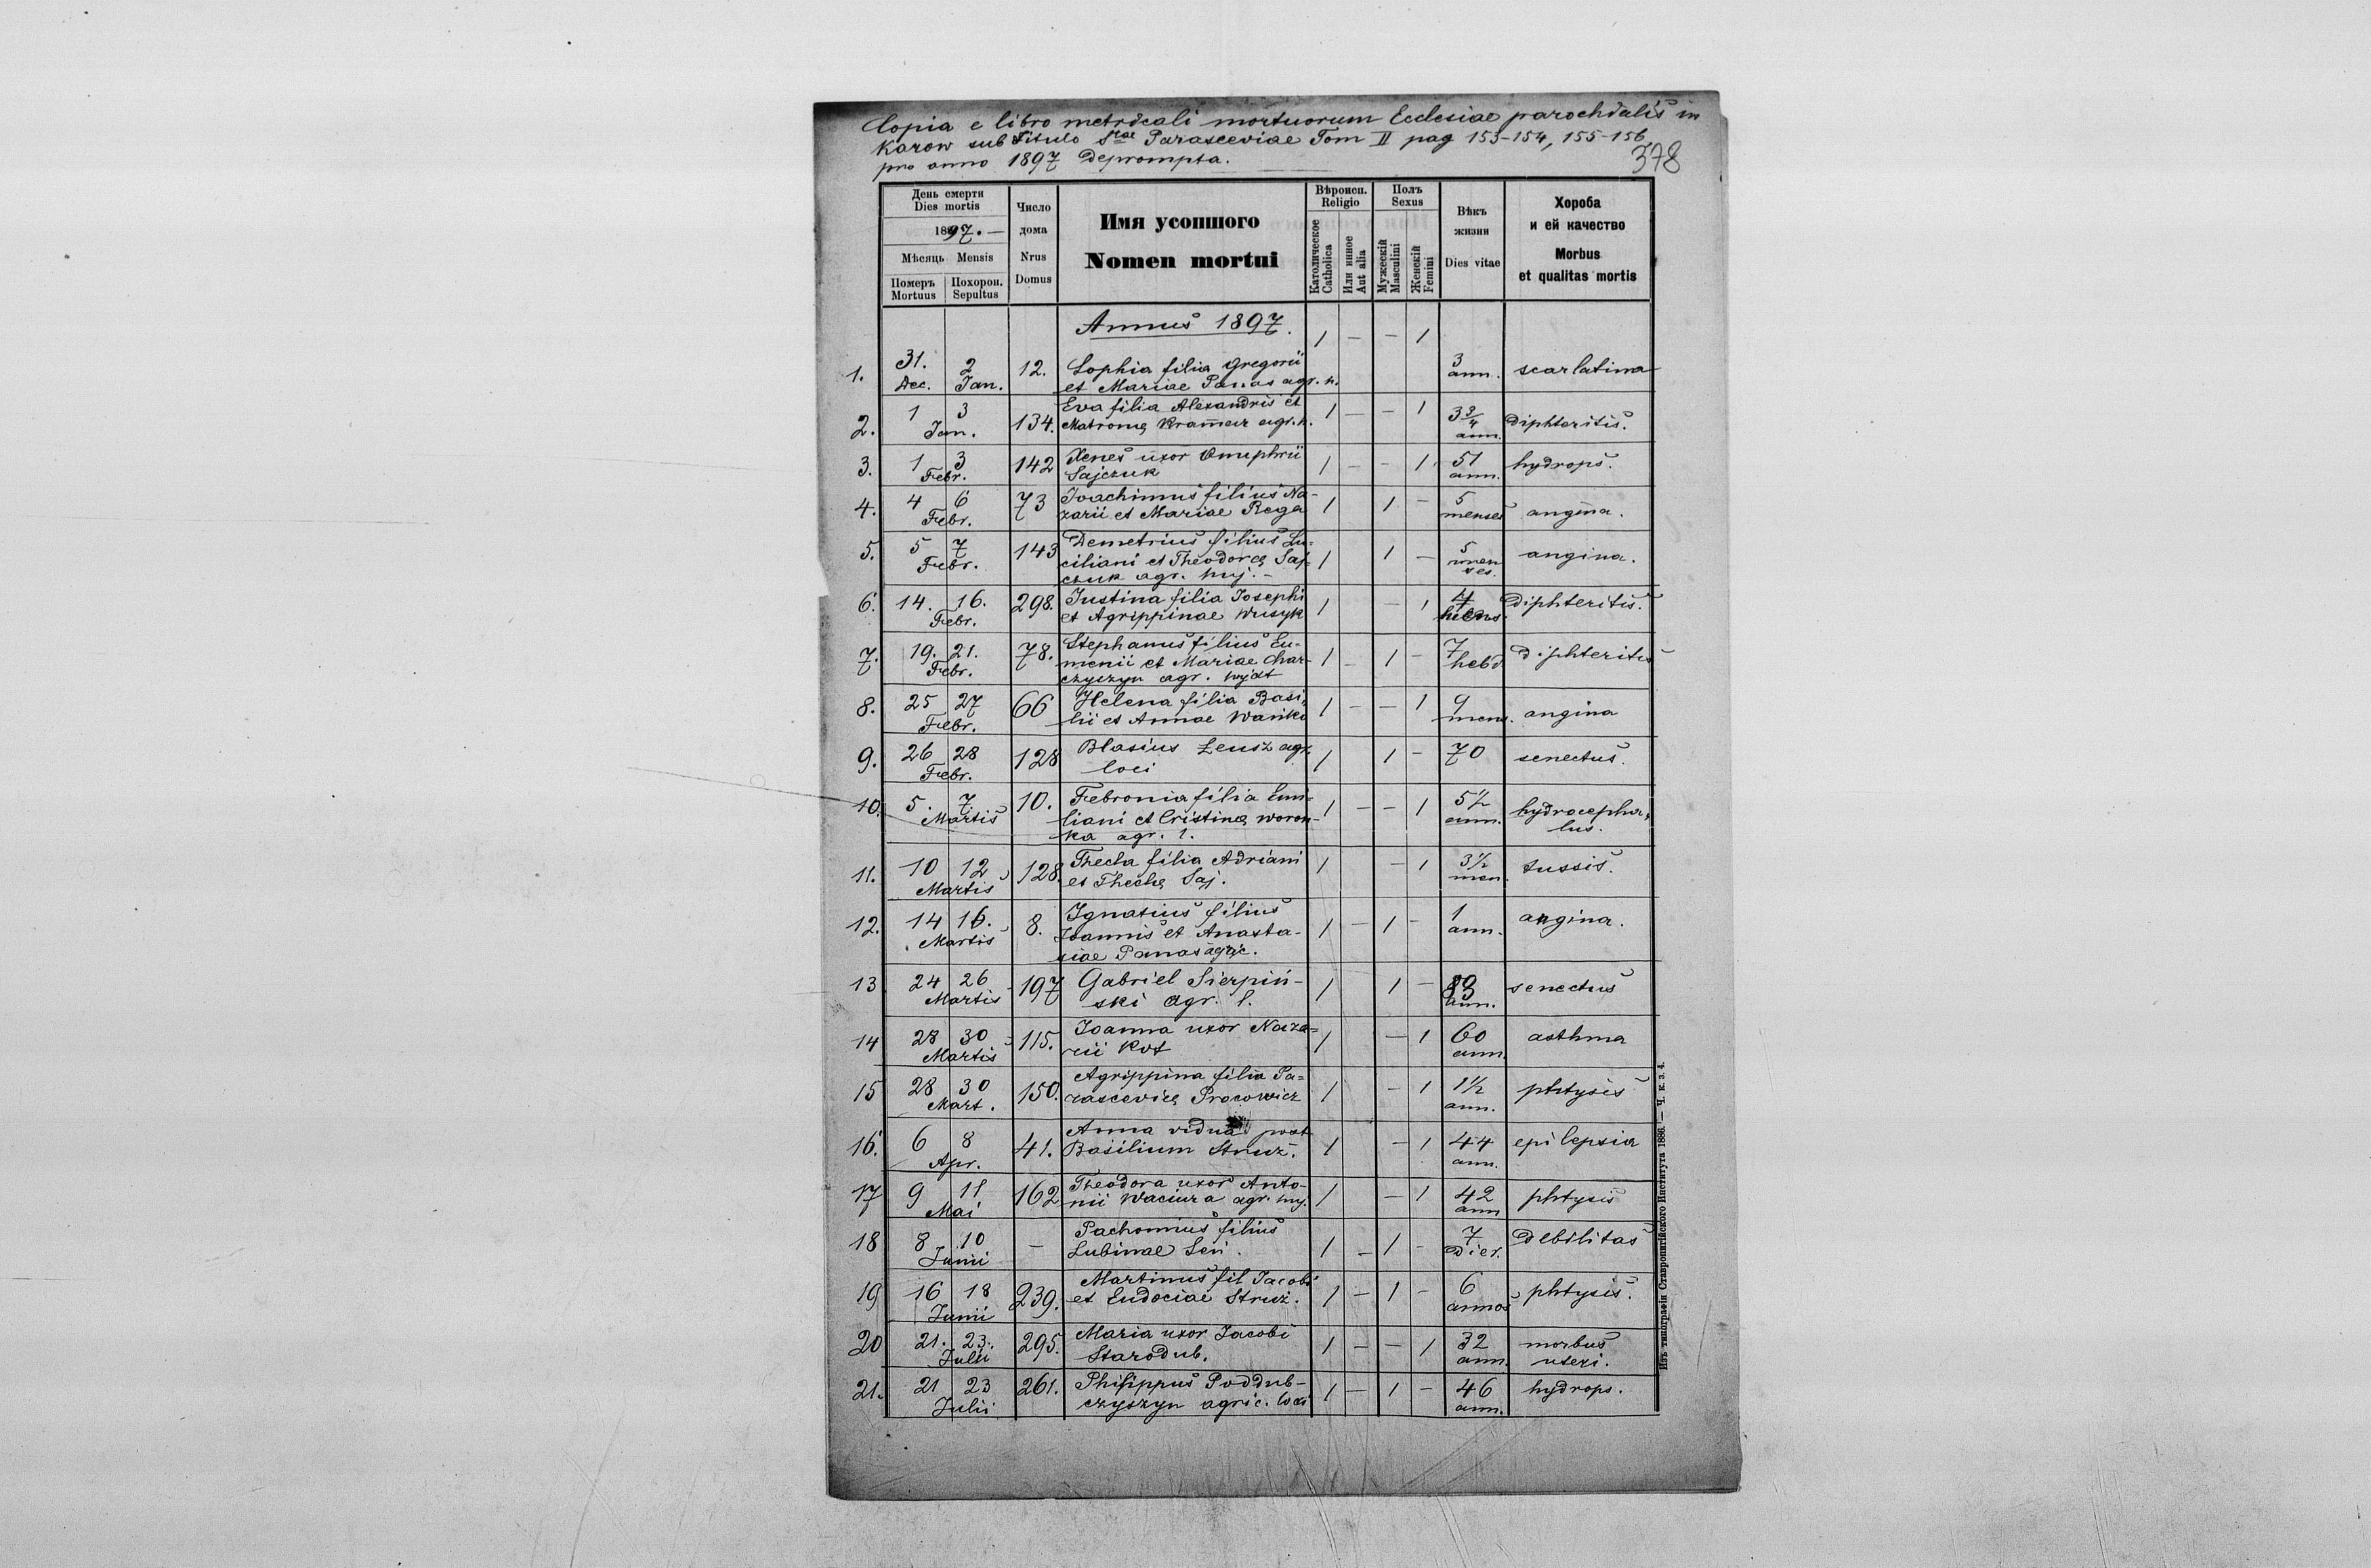 Copia e libro metricali mortuorum Ecclesiae parochialis in
Karow sub Titulo Stae Parasceviae Tom II pag 153-154, 155-156
pro anno 1897 Deprompta.
378
День смерти
Dies mortis
1897. —
Мѣсяць Mensis
Померъ
Mortuus
Похорон.
Sepultus
Число
дома
Nrus
Domus
Имя усопшого
Nomen mortui
Вѣроисп.
Religio
Католическое
Catholica
Или инное
Aut alia
Полъ
Sexus
Мужескій
Masculini
Женскій
Femini
Вѣкъ
жизни
Dies vitae
Хороба
и ей качество
Morbus
et qualitas mortis
Annus 1897.
1. 31. Dec. 2 Jan. 12. Sophia filia Gregorii
et Mariae Panas agr. h. 1 — — 1 3 ann. scarlatina
2. 1 3 Jan. 134. Eva filia Alexandris et
Matronę Kramar agr. h. 1 — — 1 3 3/4 ann. diphteritis.
3. 1 3 Febr. 142 Xenes uxor Onuphrii
Sajczuk 1 — — 1 51 ann. hydrops.
4. 4 6 Febr. 73 Joachimus filius Na-
zarii et Mariae Rega 1 1 — 5 menses angina.
5. 5 7 Febr. 143 Demetrius filius Lu-
ciliani et Theodorę Saj-
czuk agr. huj. — 1 1 — 5 menses. angina.
6. 14. 16. Febr. 298. Justina filia Josephi
et Agrippinae Wusyk 1 — 1 4 Diphteritis.
7. 19. 21. Febr. 78. Stephanus filius Eu-
menii et Mariae Char-
czyszyn agr. 1 — 1 — 7 hebd Diphteritis
8. 25 27 Febr. 66 Helena filia Basi-
lii et Annae Wańko 1 — — 1 9 mens. angina
9. 26 28 Febr. 128 Blasius Łeusz agr.
loci 1 1 — 70 senectus.
10. 5. 7. Martis 10. Febronia filia Emi-
liani et Cristinę Woron-
ka agr. l. 1 — — 1 5 1/2 ann. hydrocepha-
lus.
11. 10 12 Martis 128. Thecla filia Adriani
et Theclę Saj. 1 — 1 3 1/2 men. tussis.
12. 14 16. Martis 8. Ignatius filius
Joannis et Anasta-
siae Panas agric. 1 — 1 — 1 ann. angina.
13 24 26 Martis 197 Gabriel Sierpiń-
ski agr. l. 1 1 — ann. senectus
14 28 30 Martis 115. Joanna uxor Naza-
rii Kot 1 — 1 60 ann. asthma
15 28 30 Mart. 150. Agrippina filia Pa-
rascevię Procowicz 1 — 1 1 1/2 ann. phtysis
16. 6 8 Apr. 41. Anna vidua post
Basilium Struż. 1 — 1 44 ann. epilepsia
17 9 11 Mai 162 Theodora uxor Anto-
nii Waciura agr. huj. 1 — 1 42 ann phtysis
18 8 10 Junii — Pachomius filius
Lubinae Seń. 1 — 1 — 7 Dier. Debilitas
19 16 18 Junii 239. Martinus fil Jacobi
et Eudociae Struż. 1 — 1 — 6 annos phtysis.
20 21. 23. Julii 295. Maria uxor Jacobi
Starodub. 1 — — 1 32 ann. morbus
uteri.
21. 21 23 Julii 261. Philippus Poddub-
czyszyn agric. loci 1 — 1 — 46 ann. hydrops.
Изъ типографіи Ставропигійского Института 1886. — Ч. к. з. 4.